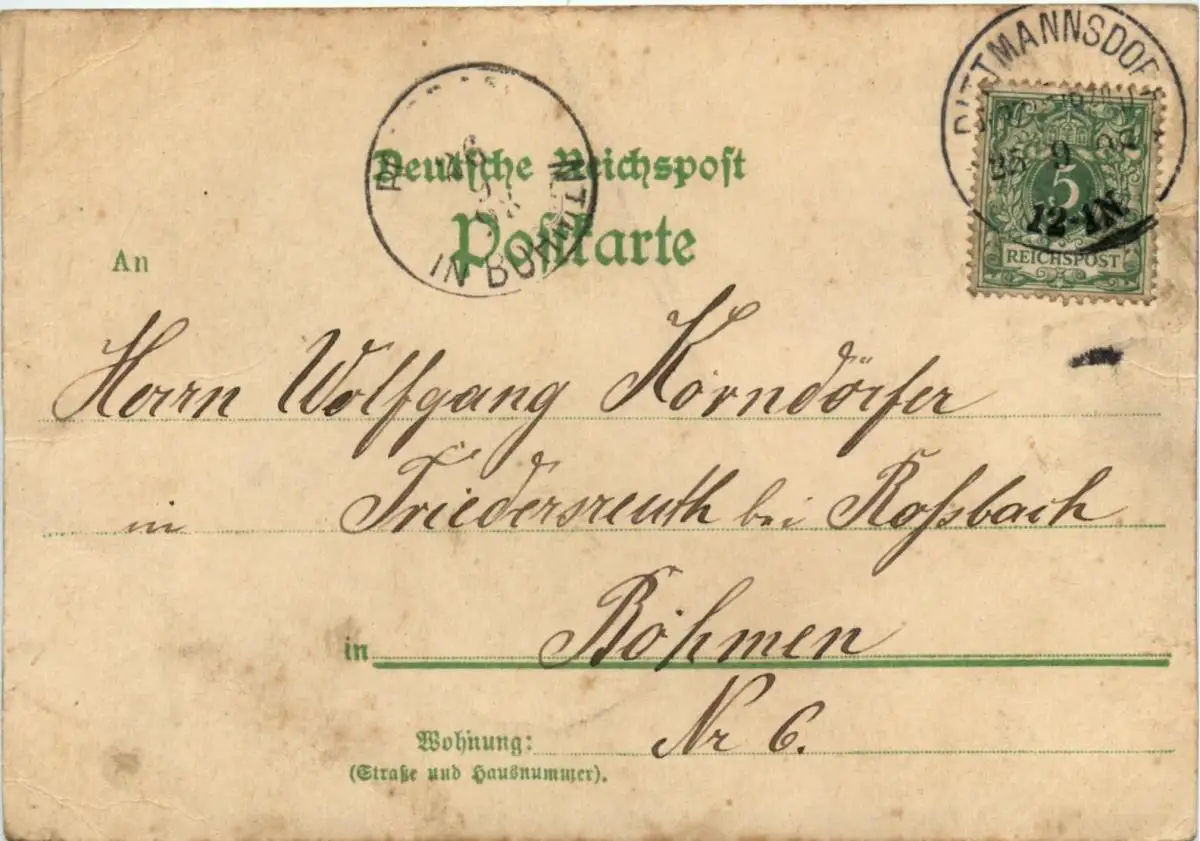 DITTMANNSDORF
25 9 98
12-1N
5
REICHSPOST
26
9
IN BÖHMEN
Deutsche Reichspost
Postkarte
An
Herrn Wolfgang Körndörfer
in Friedersreuth bei Roßbach
in Böhmen
Wohnung: Nr 6.
(Straße und Hausnummer).